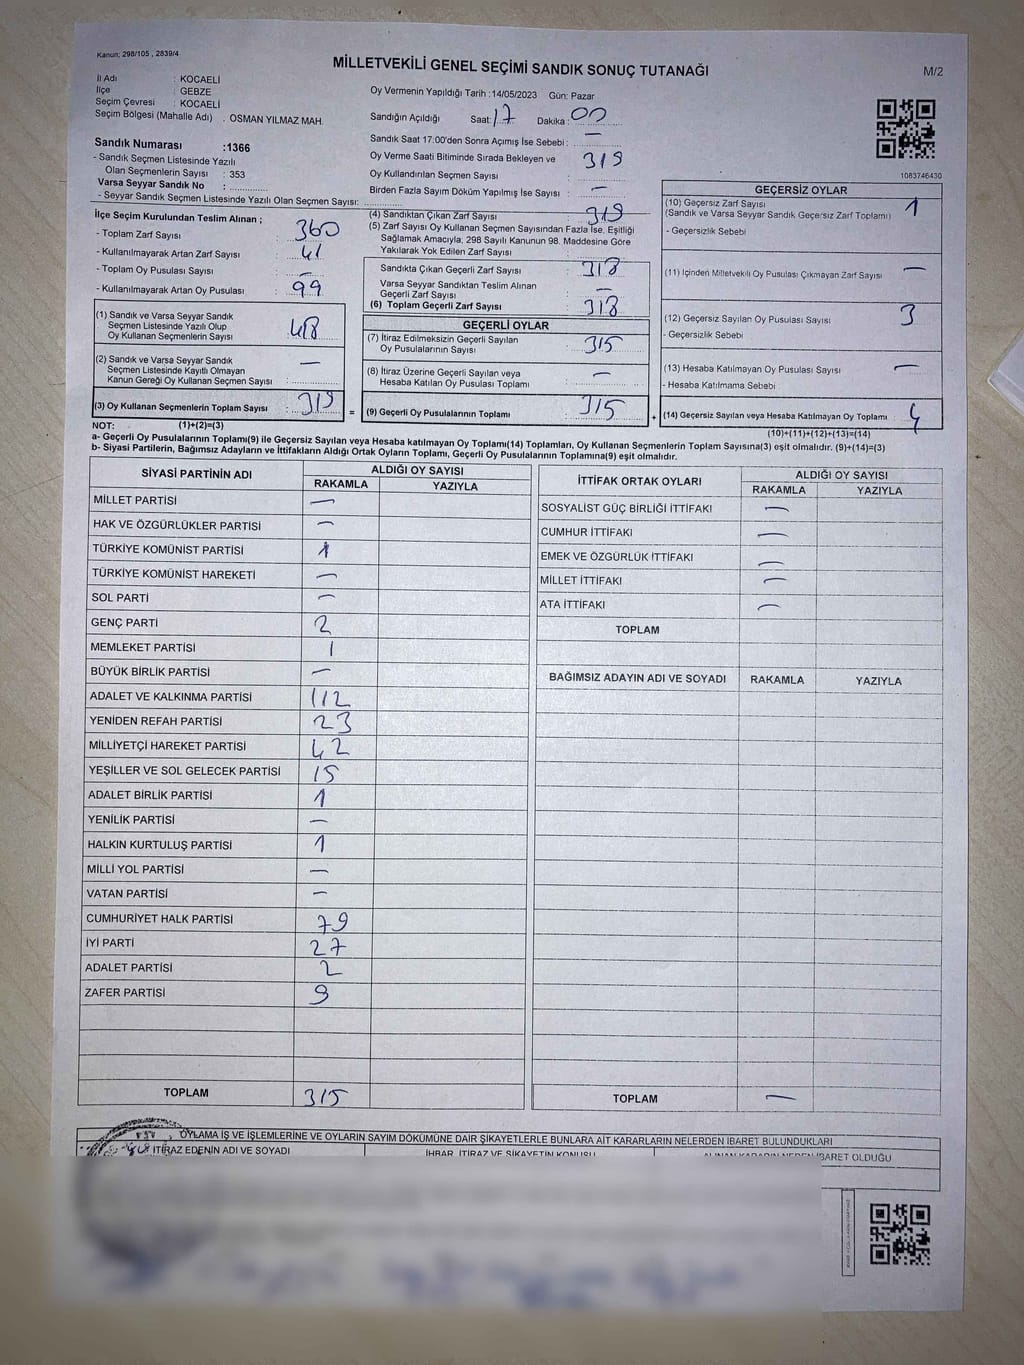 Kanun: 298/105 , 2839/4
MİLLETVEKİLİ GENEL SEÇİMİ SANDIK SONUÇ TUTANAĞI
M/2
İl Adı : KOCAELİ
İlçe : GEBZE
Seçim Çevresi : KOCAELİ
Seçim Bölgesi (Mahalle Adı) . OSMAN YILMAZ MAH.
Oy Vermenin Yapıldığı Tarih :14/05/2023 Gün: Pazar
Sandığın Açıldığı Saat: 17 Dakika: 00
Sandık Numarası :1366
- Sandık Seçmen Listesinde Yazılı
Olan Seçmenlerin Sayısı : 353
Varsa Seyyar Sandık No :
- Seyyar Sandık Seçmen Listesinde Yazılı Olan Seçmen Sayısı:
Sandık Saat 17:00'den Sonra Açımış İse Sebebi : —
Oy Verme Saati Bitiminde Sırada Bekleyen ve 319
Oy Kullandırılan Seçmen Sayısı
Birden Fazla Sayım Döküm Yapılmış İse Sayısı : —
1083746430
İlçe Seçim Kurulundan Teslim Alınan ;
- Toplam Zarf Sayısı : 360
- Kullanılmayarak Artan Zarf Sayısı : 41
- Toplam Oy Pusulası Sayısı : —
- Kullanılmayarak Artan Oy Pusulası : 99
(1) Sandık ve Varsa Seyyar Sandık
Seçmen Listesinde Yazılı Olup
Oy Kullanan Seçmenlerin Sayısı
(2) Sandık ve Varsa Seyyar Sandık —
Seçmen Listesinde Kayıtlı Olmayan
Kanun Gereği Oy Kullanan Seçmen Sayısı :
(3) Oy Kullanan Seçmenlerin Toplam Sayısı : 319 =
(4) Sandıktan Çıkan Zarf Sayısı : 319
(5) Zarf Sayısı Oy Kullanan Seçmen Sayısından Fazla İse, Eşitliği
Sağlamak Amacıyla, 298 Sayılı Kanunun 98. Maddesine Göre
Yakılarak Yok Edilen Zarf Sayısı :
Sandıkta Çıkan Geçerli Zarf Sayısı : 318
Varsa Seyyar Sandıktan Teslim Alınan —
Geçerli Zarf Sayısı :
(6) Toplam Geçerli Zarf Sayısı : 318
GEÇERLİ OYLAR
(7) İtiraz Edilmeksizin Geçerli Sayılan 315
Oy Pusulalarının Sayısı
(8) İtiraz Üzerine Geçerli Sayılan veya —
Hesaba Katılan Oy Pusulası Toplamı
(9) Geçerli Oy Pusulalarının Toplamı : 315 +
GEÇERSİZ OYLAR
(10) Geçersiz Zarf Sayısı 1
(Sandık ve Varsa Seyyar Sandık Geçersiz Zarf Toplamı)
- Geçersizlik Sebebi
(11) İçinden Milletvekili Oy Pusulası Çıkmayan Zarf Sayısı —
(12) Geçersiz Sayılan Oy Pusulası Sayısı 3
- Geçersizlik Sebebi
(13) Hesaba Katılmayan Oy Pusulası Sayısı —
- Hesaba Katılmama Sebebi
(14) Geçersiz Sayılan veya Hesaba Katılmayan Oy Toplamı 4
NOT: (1)+(2)=(3)
(10)+(11)+(12)+(13)=(14)
a- Geçerli Oy Pusulalarının Toplamı(9) ile Geçersiz Sayılan veya Hesaba katılmayan Oy Toplamı(14) Toplamları, Oy Kullanan Seçmenlerin Toplam Sayısına(3) eşit olmalıdır. (9)+(14)=(3)
b- Siyasi Partilerin, Bağımsız Adayların ve İttifakların Aldığı Ortak Oyların Toplamı, Geçerli Oy Pusulalarının Toplamına(9) eşit olmalıdır.
SİYASİ PARTİNİN ADI ALDIĞI OY SAYISI
RAKAMLA YAZIYLA
MİLLET PARTİSİ —
HAK VE ÖZGÜRLÜKLER PARTİSİ —
TÜRKİYE KOMÜNİST PARTİSİ 1
TÜRKİYE KOMÜNİST HAREKETİ —
SOL PARTİ —
GENÇ PARTİ 2
MEMLEKET PARTİSİ 1
BÜYÜK BİRLİK PARTİSİ —
ADALET VE KALKINMA PARTİSİ 112
YENİDEN REFAH PARTİSİ 23
MİLLİYETÇİ HAREKET PARTİSİ 42
YEŞİLLER VE SOL GELECEK PARTİSİ 15
ADALET BİRLİK PARTİSİ 1
YENİLİK PARTİSİ —
HALKIN KURTULUŞ PARTİSİ 1
MİLLİ YOL PARTİSİ —
VATAN PARTİSİ —
CUMHURİYET HALK PARTİSİ 79
İYİ PARTİ 27
ADALET PARTİSİ 2
ZAFER PARTİSİ 9
TOPLAM 315
İTTİFAK ORTAK OYLARI ALDIĞI OY SAYISI
RAKAMLA YAZIYLA
SOSYALİST GÜÇ BİRLİĞİ İTTİFAKI —
CUMHUR İTTİFAKI —
EMEK VE ÖZGÜRLÜK İTTİFAKI —
MİLLET İTTİFAKI —
ATA İTTİFAKI —
TOPLAM
BAĞIMSIZ ADAYIN ADI VE SOYADI RAKAMLA YAZIYLA
TOPLAM —
OYLAMA İŞ VE İŞLEMLERİNE VE OYLARIN SAYIM DÖKÜMÜNE DAİR ŞİKAYETLERLE BUNLARA AİT KARARLARIN NELERDEN İBARET BULUNDUKLARI
İTİRAZ EDENİN ADI VE SOYADI İHBAR, İTİRAZ VE ŞİKAYETİN KONUSU ALINAN KARARIN NEDEN İBARET OLDUĞU